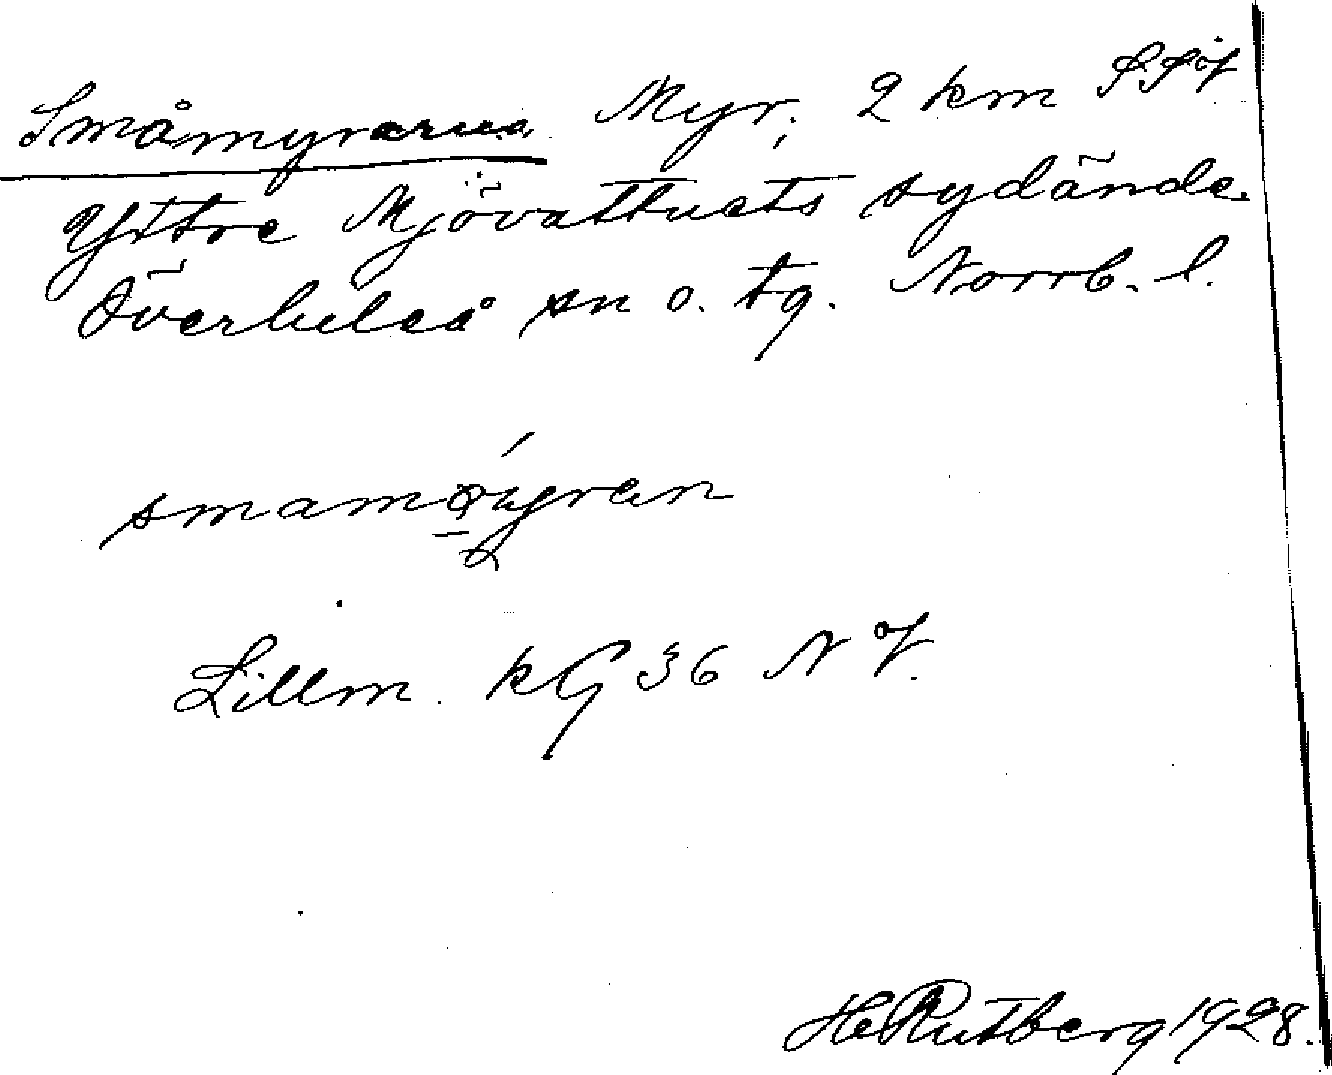 Småmyrarna. Myr; 2 km S.S.V.
Yttre Mjövattnets sydände.
Överluleå sn o. tg. Norrb. l.
Lillm. kG 36 NV.
H Rutberg 1928.